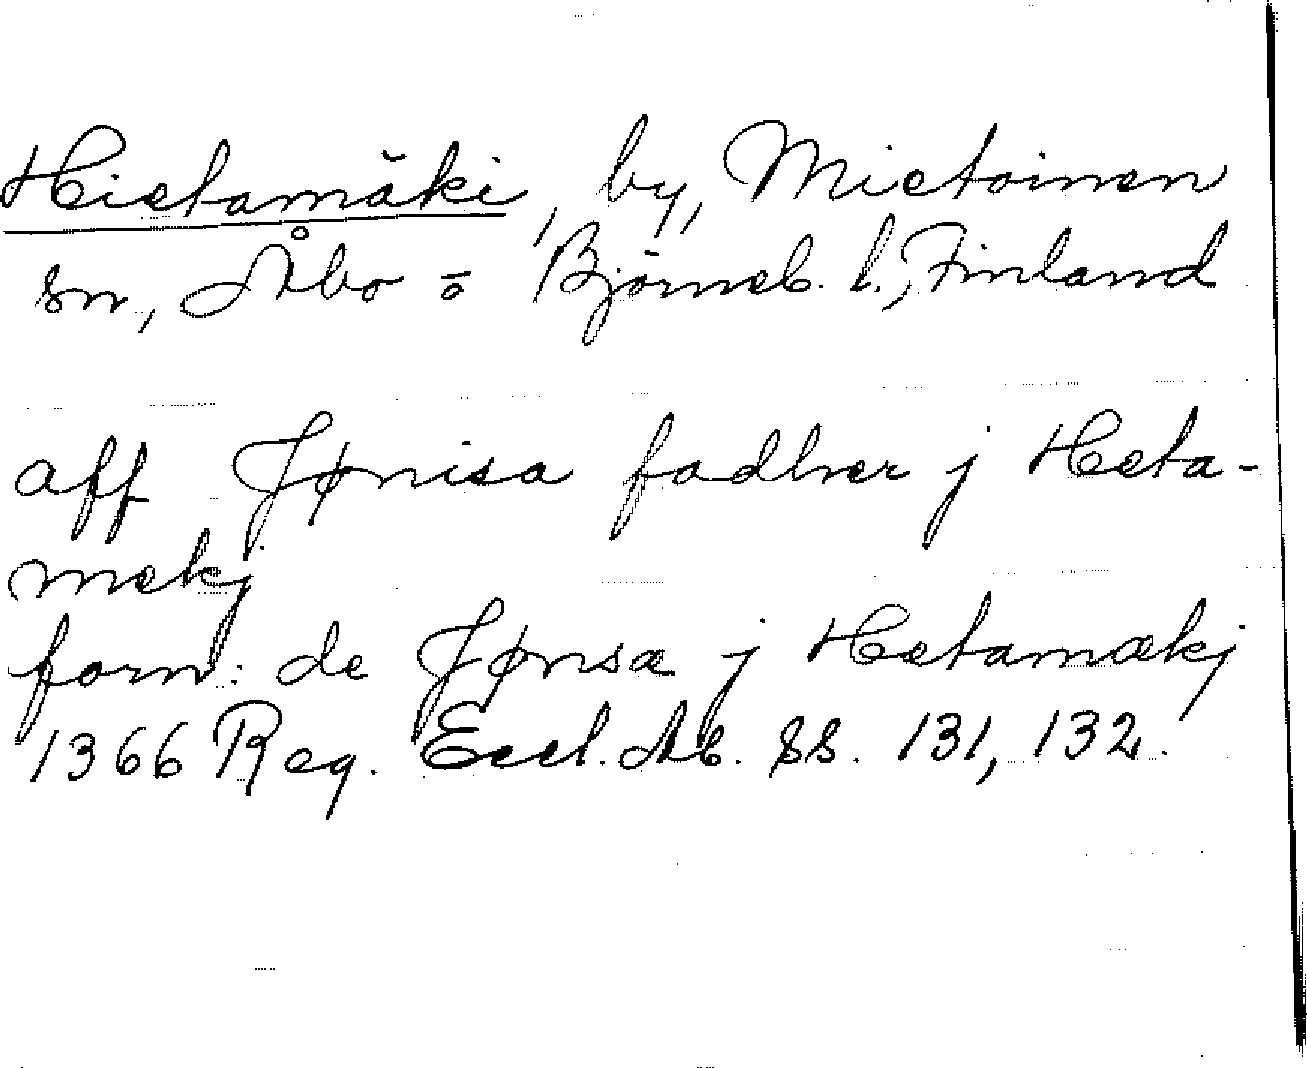 Hietamäki, by, Mietoinen
sn, Åbo o Björneb. l., Finland
aff Jønisa fadher j Heta-
mækj
forn: de Jønsa j Hetamækj
1366 Reg. Eccl. Ab. ss. 131, 132.